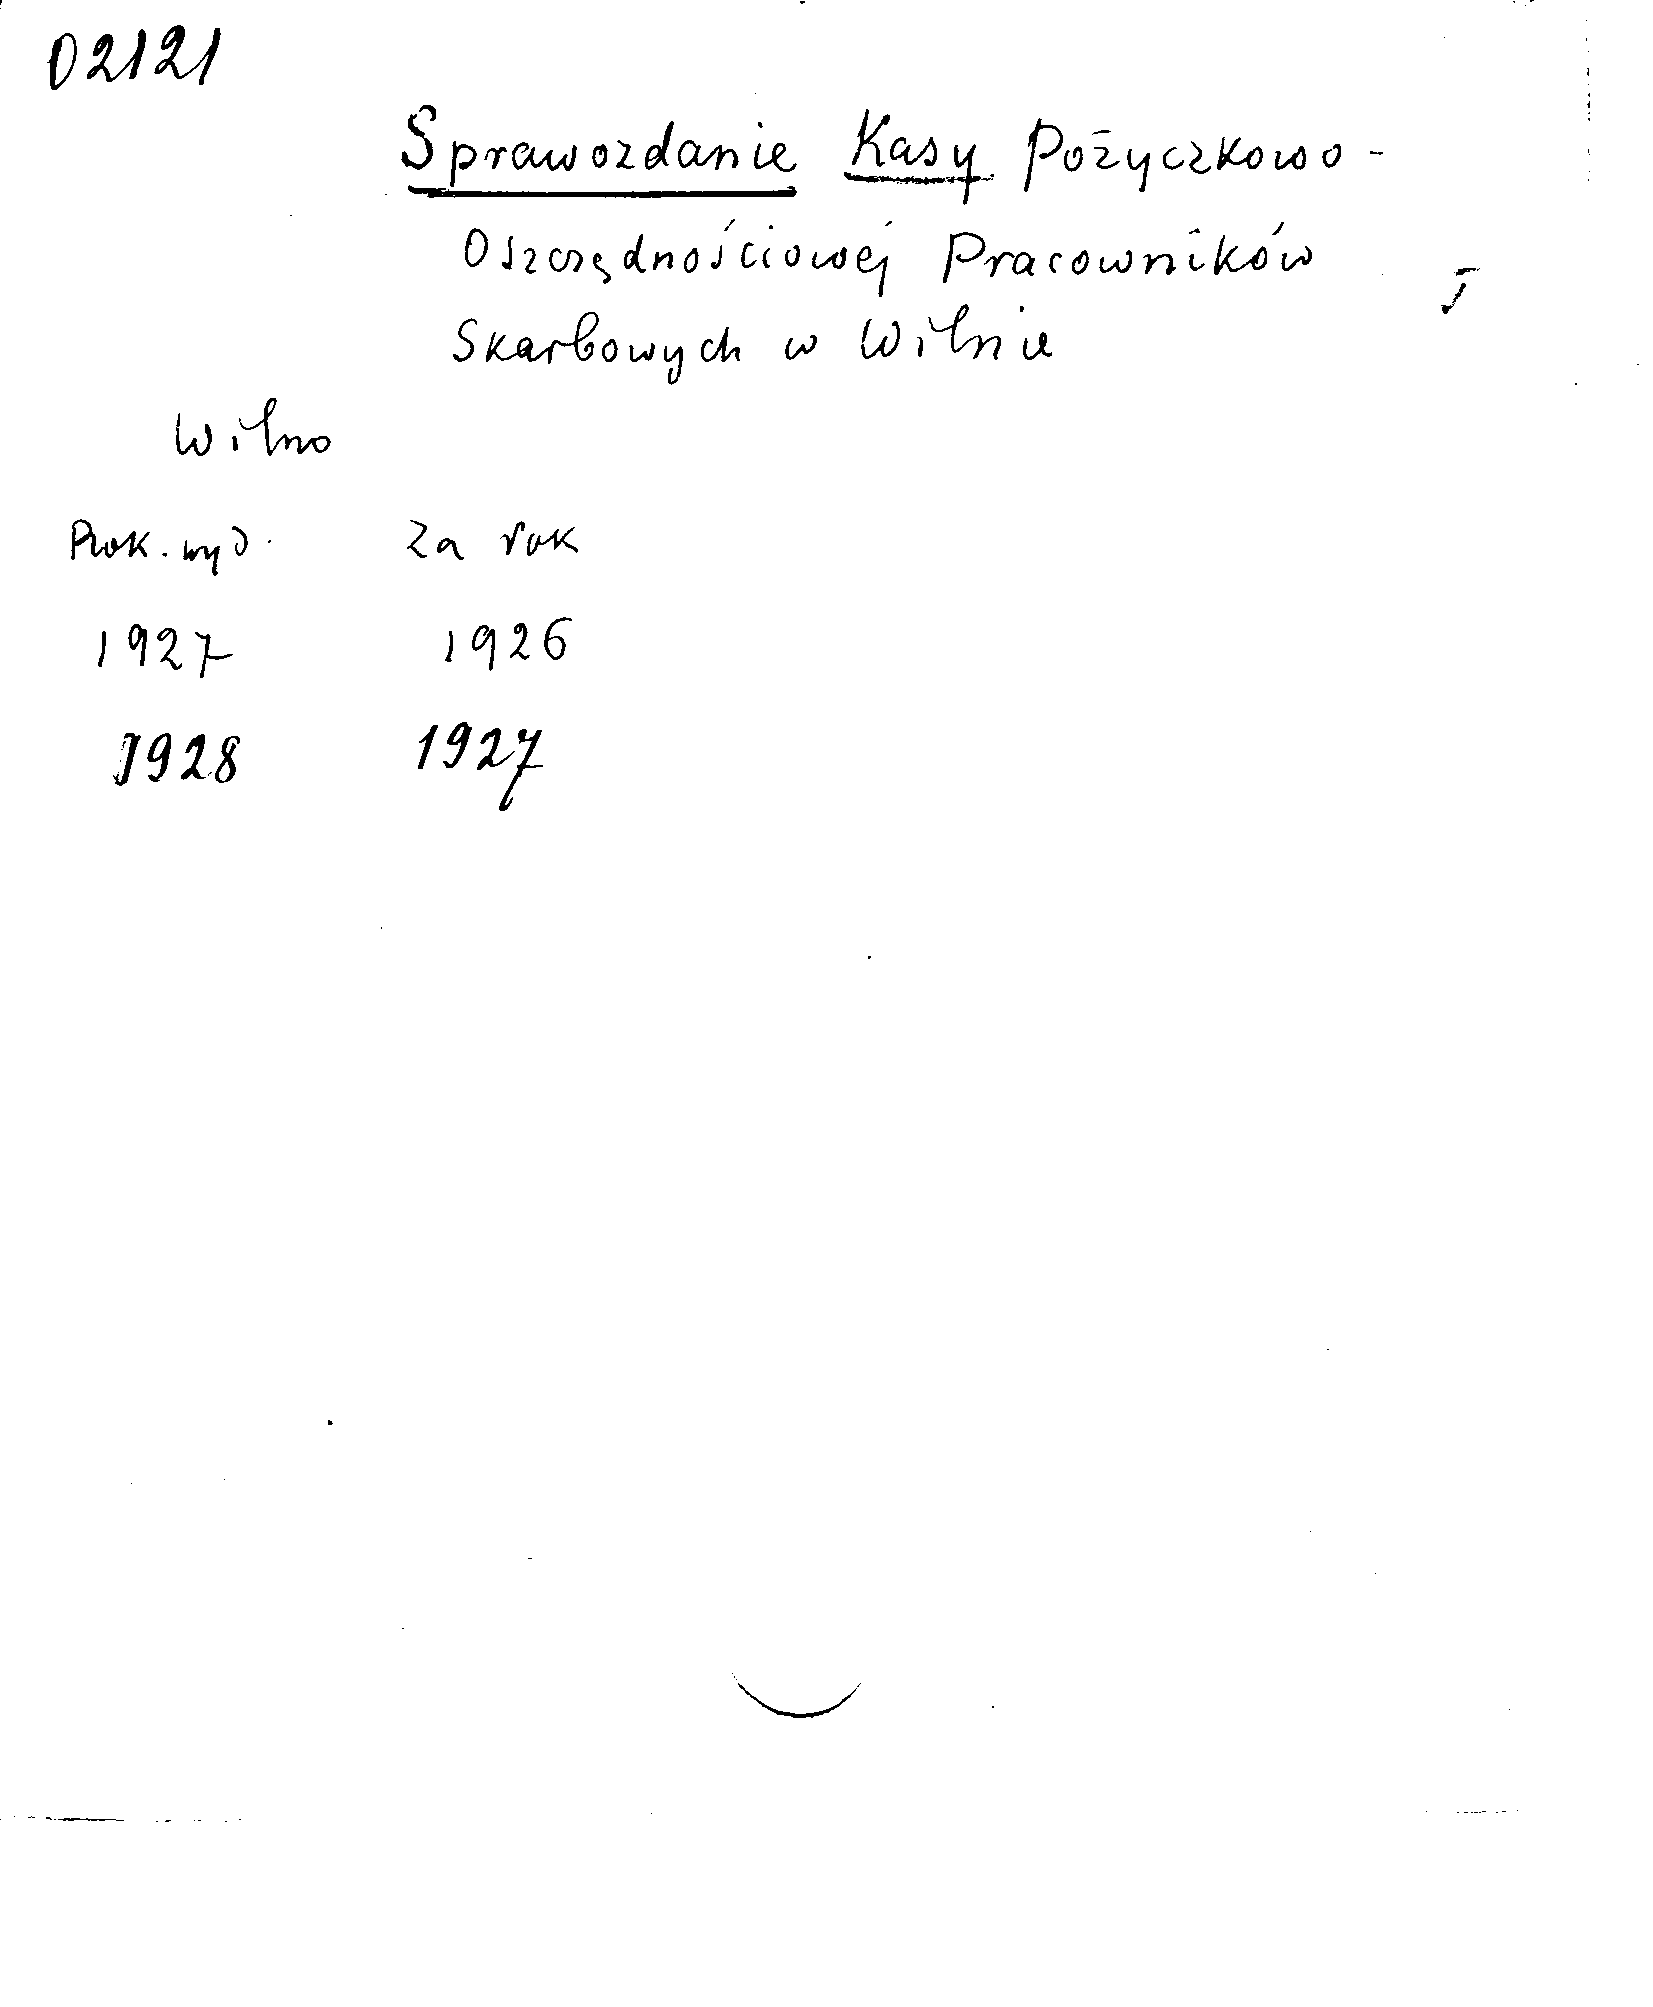 02121
Sprawozdanie Kasy Pożyczkowo-
Oszczędnościowej Pracowników
Skarbowych w Wilnie
Wilno
Rok. wyd. Za rok
1927 1926
1928 1927